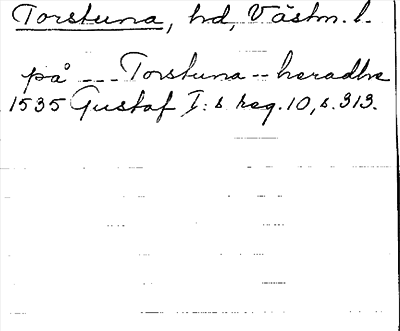 Torstuna, hd, Västm. l.
på --- Torstuna -- heradhe
1535 Gustaf I: s reg. 10, s. 313.